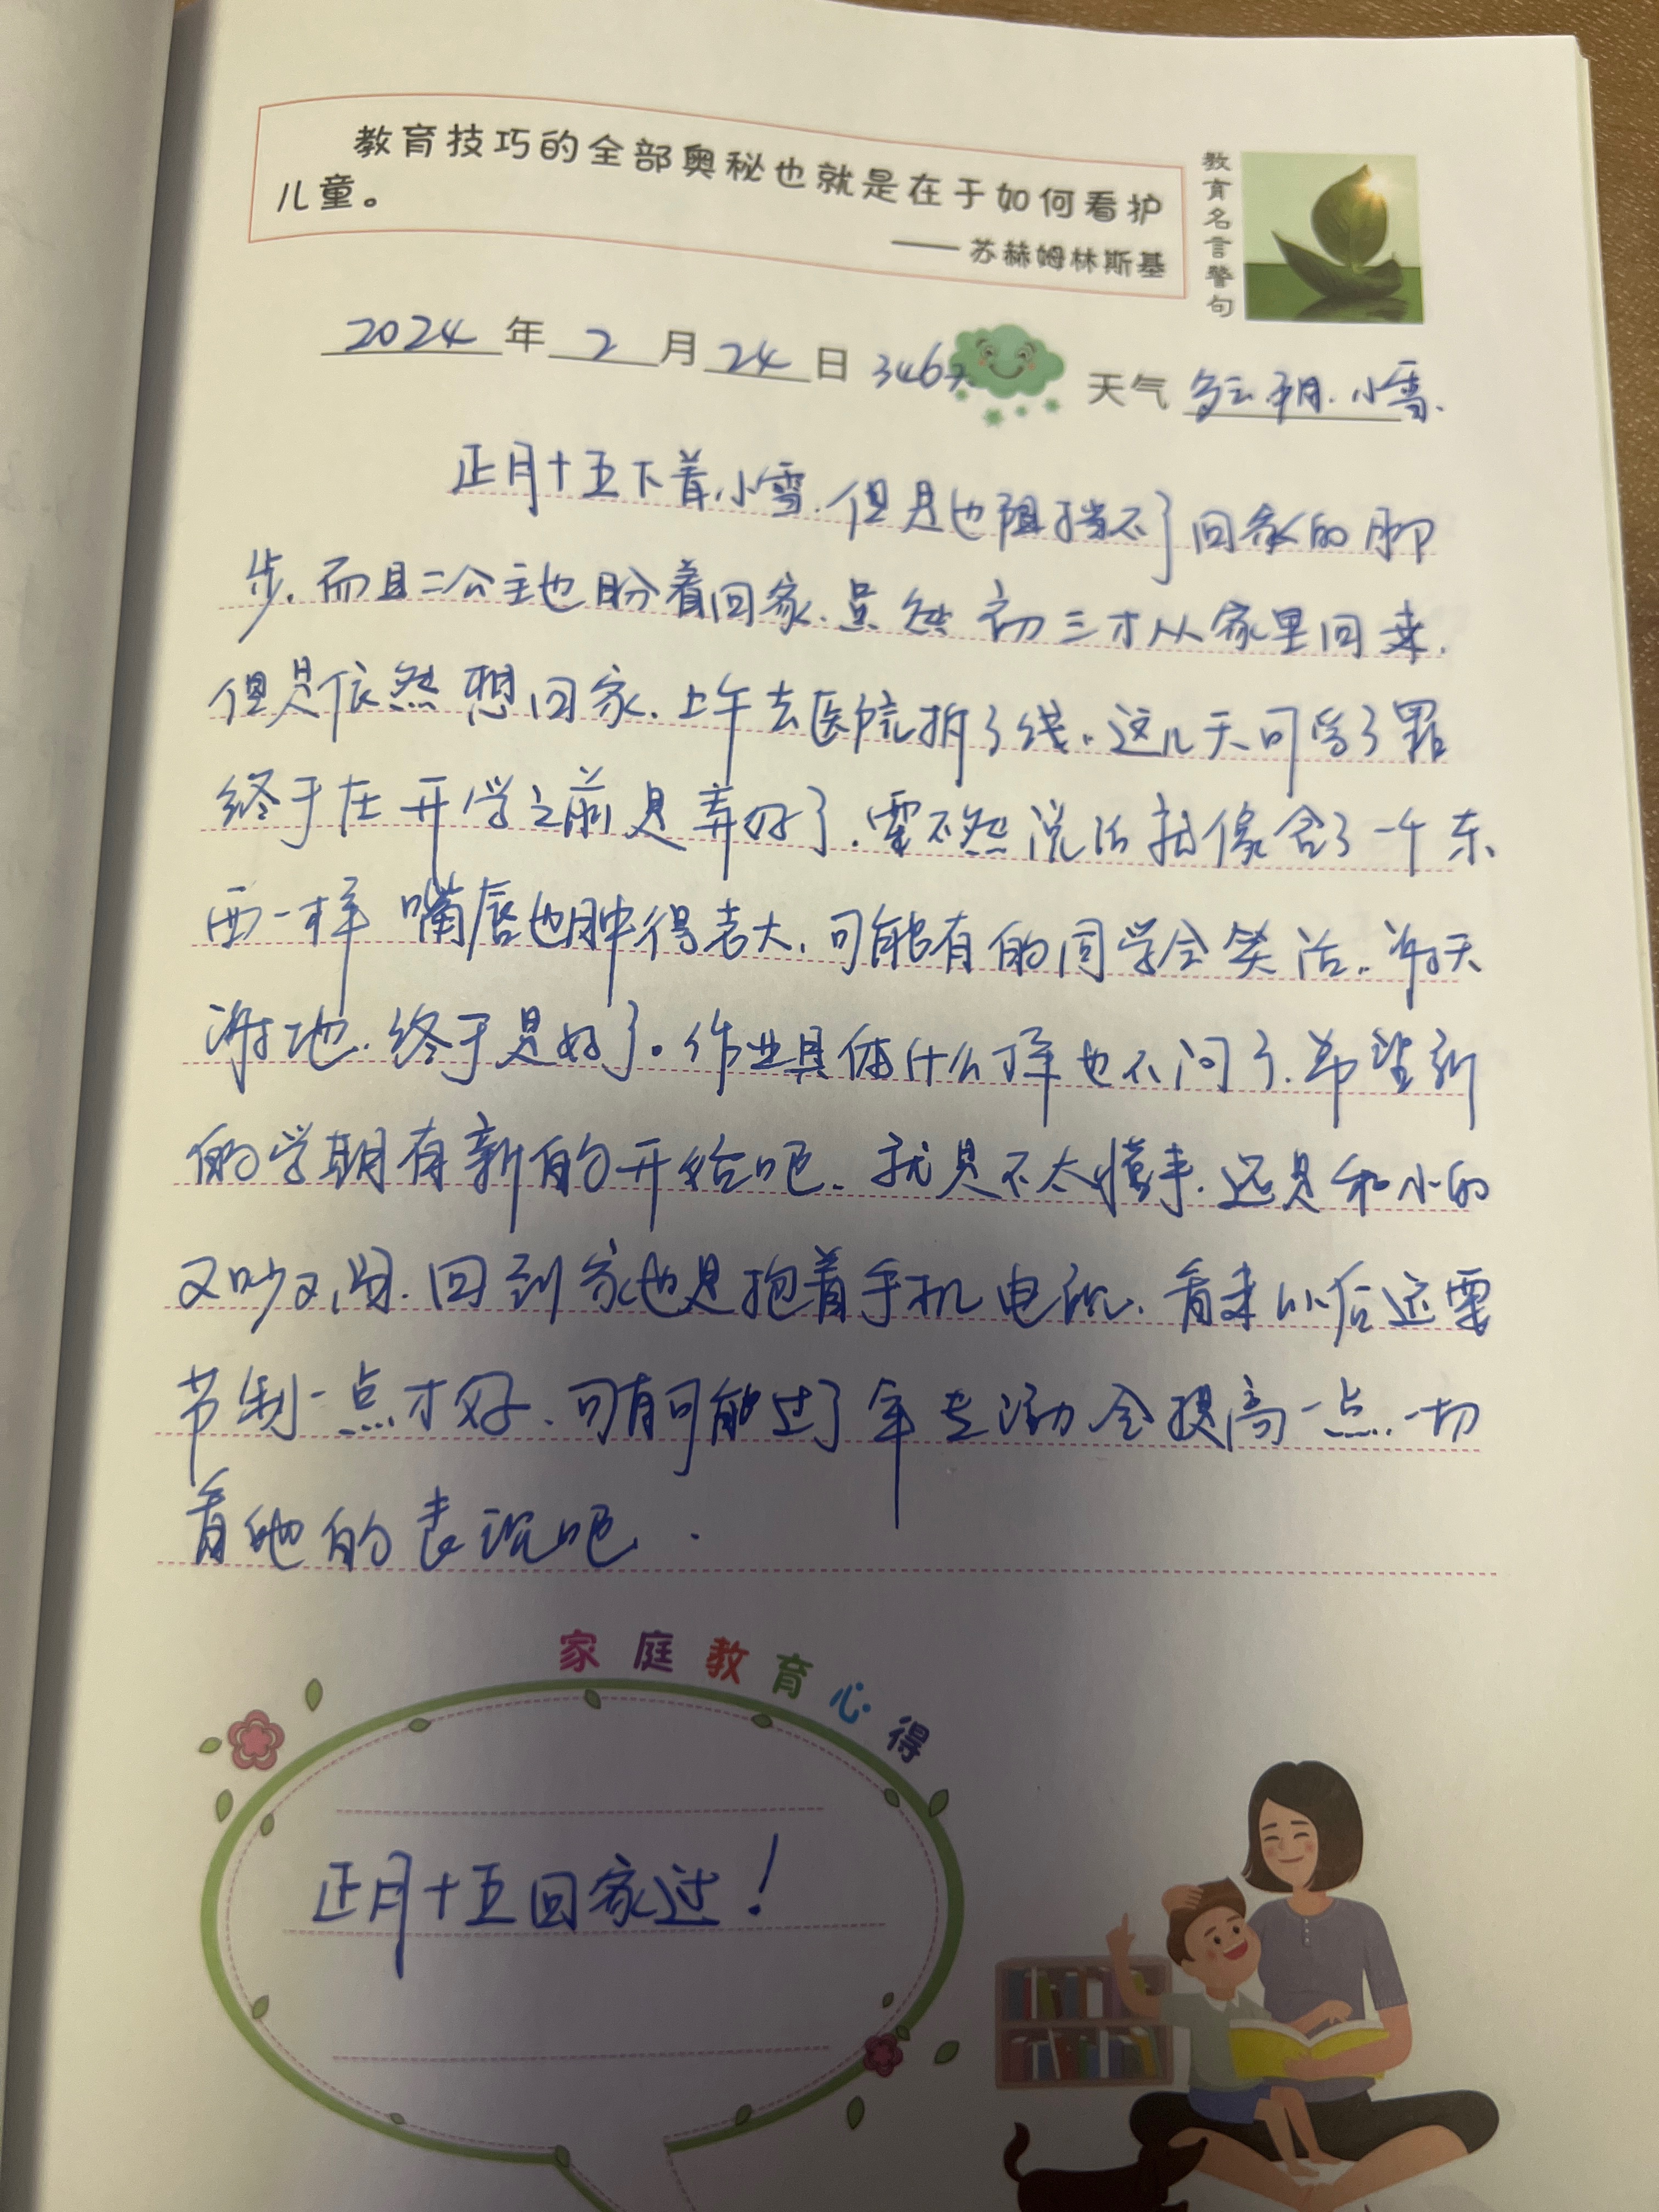 教育技巧的全部奥秘也就是在于如何看护
儿童。
——苏赫姆林斯基
教育名言警句
2024年2月24日 346天 天气 多云.阴.小雪.
正月十五下着小雪.但是也阻挡不了回家的脚
步.而且二公主也盼着回家.虽然初三才从家里回来.
但是依然想回家.上午去医院拆了线.这几天可受了罪
终于在开学之前是弄好了.要不然说话就像含了一个东
西一样 嘴唇也肿得老大.可能有的同学会笑话.谢天
谢地.终于是好了。作业具体什么样也不问了.希望新
的学期有新的开始吧.就是不太懂事.还是和小的
又吵又闹.回到家也是抱着手机电视.看来以后还要
节制一点才好.可有可能过了年 会提高一点.一切
看她的表现吧.
家庭教育心得
正月十五回家过!